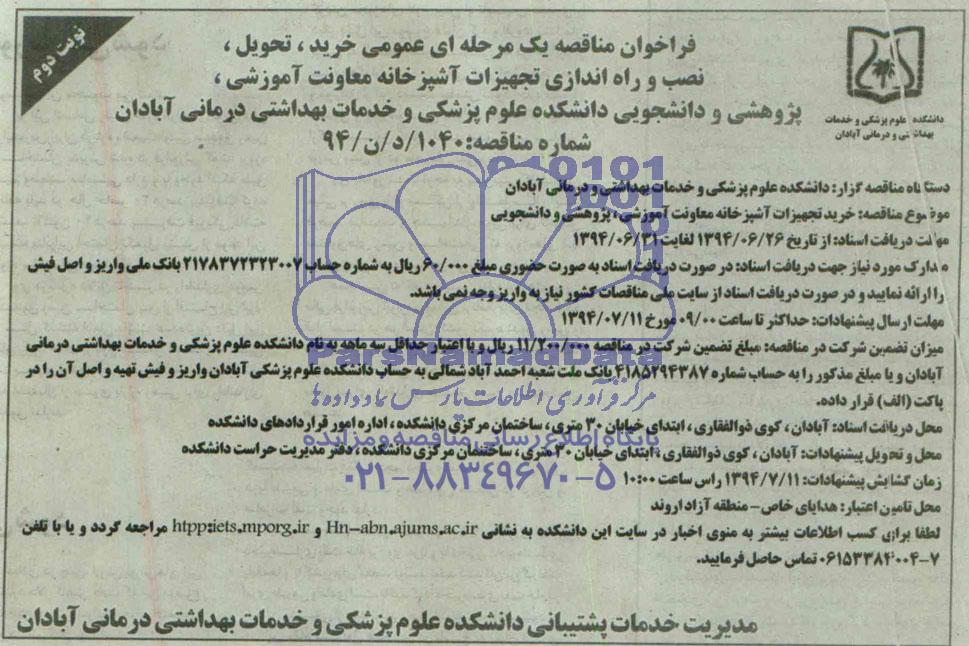 نوبت دوم
فراخوان مناقصه یک مرحله ای عمومی خرید ، تحویل ،
نصب و راه اندازی تجهیزات آشپزخانه معاونت آموزشی ،
پژوهشی و دانشجویی دانشکده علوم پزشکی و خدمات بهداشتی درمانی آبادان
شماره مناقصه:۱۰۴۰/د/ن/۹۴
دانشکده علوم پزشکی و خدمات
بهداشتی و درمانی آبادان
دستگاه مناقصه گزار: دانشکده علوم پزشکی و خدمات بهداشتی و درمانی آبادان
موضوع مناقصه: خرید تجهیزات آشپزخانه معاونت آموزشی ، پژوهشی و دانشجویی
مهلت دریافت اسناد: از تاریخ ۱۳۹۴/۰۶/۲۶ لغایت ۱۳۹۴/۰۶/۳۱
مدارک مورد نیاز جهت دریافت اسناد: در صورت دریافت اسناد به صورت حضوری مبلغ ۶۰/۰۰۰ ریال به شماره حساب ۲۱۷۸۳۷۲۳۲۳۰۰۷ بانک ملی واریز و اصل فیش
را ارائه نمایید و در صورت دریافت اسناد از سایت ملی مناقصات کشور نیاز به واریز وجه نمی باشد.
مهلت ارسال پیشنهادات: حداکثر تا ساعت ۰۹/۰۰ مورخ ۱۳۹۴/۰۷/۱۱
میزان تضمین شرکت در مناقصه: مبلغ تضمین شرکت در مناقصه ۱۱/۲۰۰/۰۰۰ ریال و با اعتبار حداقل سه ماهه به نام دانشکده علوم پزشکی و خدمات بهداشتی درمانی
آبادان و یا مبلغ مذکور را به حساب شماره ۴۱۸۵۲۹۴۳۸۷ بانک ملت شعبه احمد آباد شمالی به حساب دانشکده علوم پزشکی آبادان واریز و فیش تهیه و اصل آن را در
پاکت (الف) قرار داده.
محل دریافت اسناد: آبادان ، کوی ذوالفقاری ، ابتدای خیابان ۳۰ متری ، ساختمان مرکزی دانشکده ، اداره امور قراردادهای دانشکده
محل و تحویل پیشنهادات: آبادان ، کوی ذوالفقاری ، ابتدای خیابان ۳۰ متری ، ساختمان مرکزی دانشکده ، دفتر مدیریت حراست دانشکده
زمان گشایش پیشنهادات: ۱۳۹۴/۷/۱۱ راس ساعت ۱۰:۰۰
محل تامین اعتبار: هدایای خاص- منطقه آزاد اروند
لطفا برای کسب اطلاعات بیشتر به منوی اخبار در سایت این دانشکده به نشانی Hn-abn.ajums.ac.ir و htpp:iets.mporg.ir مراجعه گردد و یا با تلفن
۷-۰۶۱۵۳۳۸۴۰۰۴ تماس حاصل فرمایید.
مدیریت خدمات پشتیبانی دانشکده علوم پزشکی و خدمات بهداشتی درمانی آبادان
ParsNamadData
مرکز فرآوری اطلاعات پارس نماد داده ها
پایگاه اطلاع رسانی مناقصه و مزایده
۰۲۱-۸۸۳۴۹۶۷۰-۵